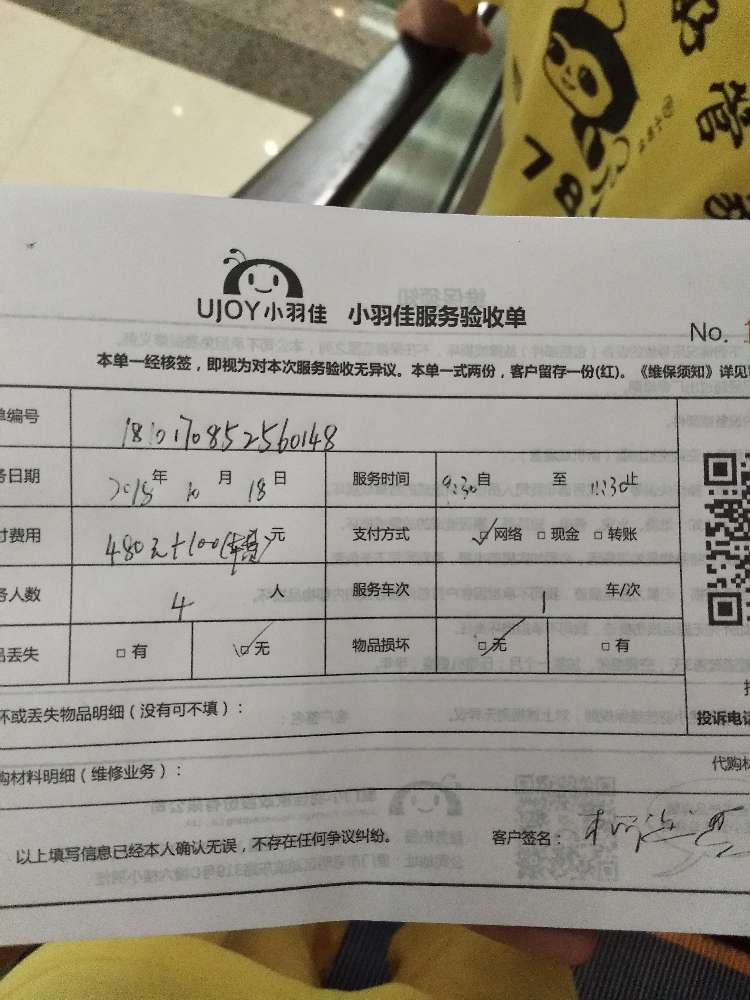 UJOY小羽佳 小羽佳服务验收单
No. 1
本单一经核签，即视为对本次服务验收无异议。本单一式两份，客户留存一份(红)。《维保须知》详见
单编号 1810170852560148
务日期 2018年 10 月 18 日 服务时间 9:30 自 至 11:30止
付费用 480元+100(车费)元 支付方式 ☑网络 □现金 □转账
务人数 4 人 服务车次 1 车/次
品丢失 □有 ☑无 物品损坏 ☑无 □有
坏或丢失物品明细（没有可不填）：
投诉电话
购材料明细（维修业务）：
代购材
以上填写信息已经本人确认无误，不存在任何争议纠纷。 客户签名：